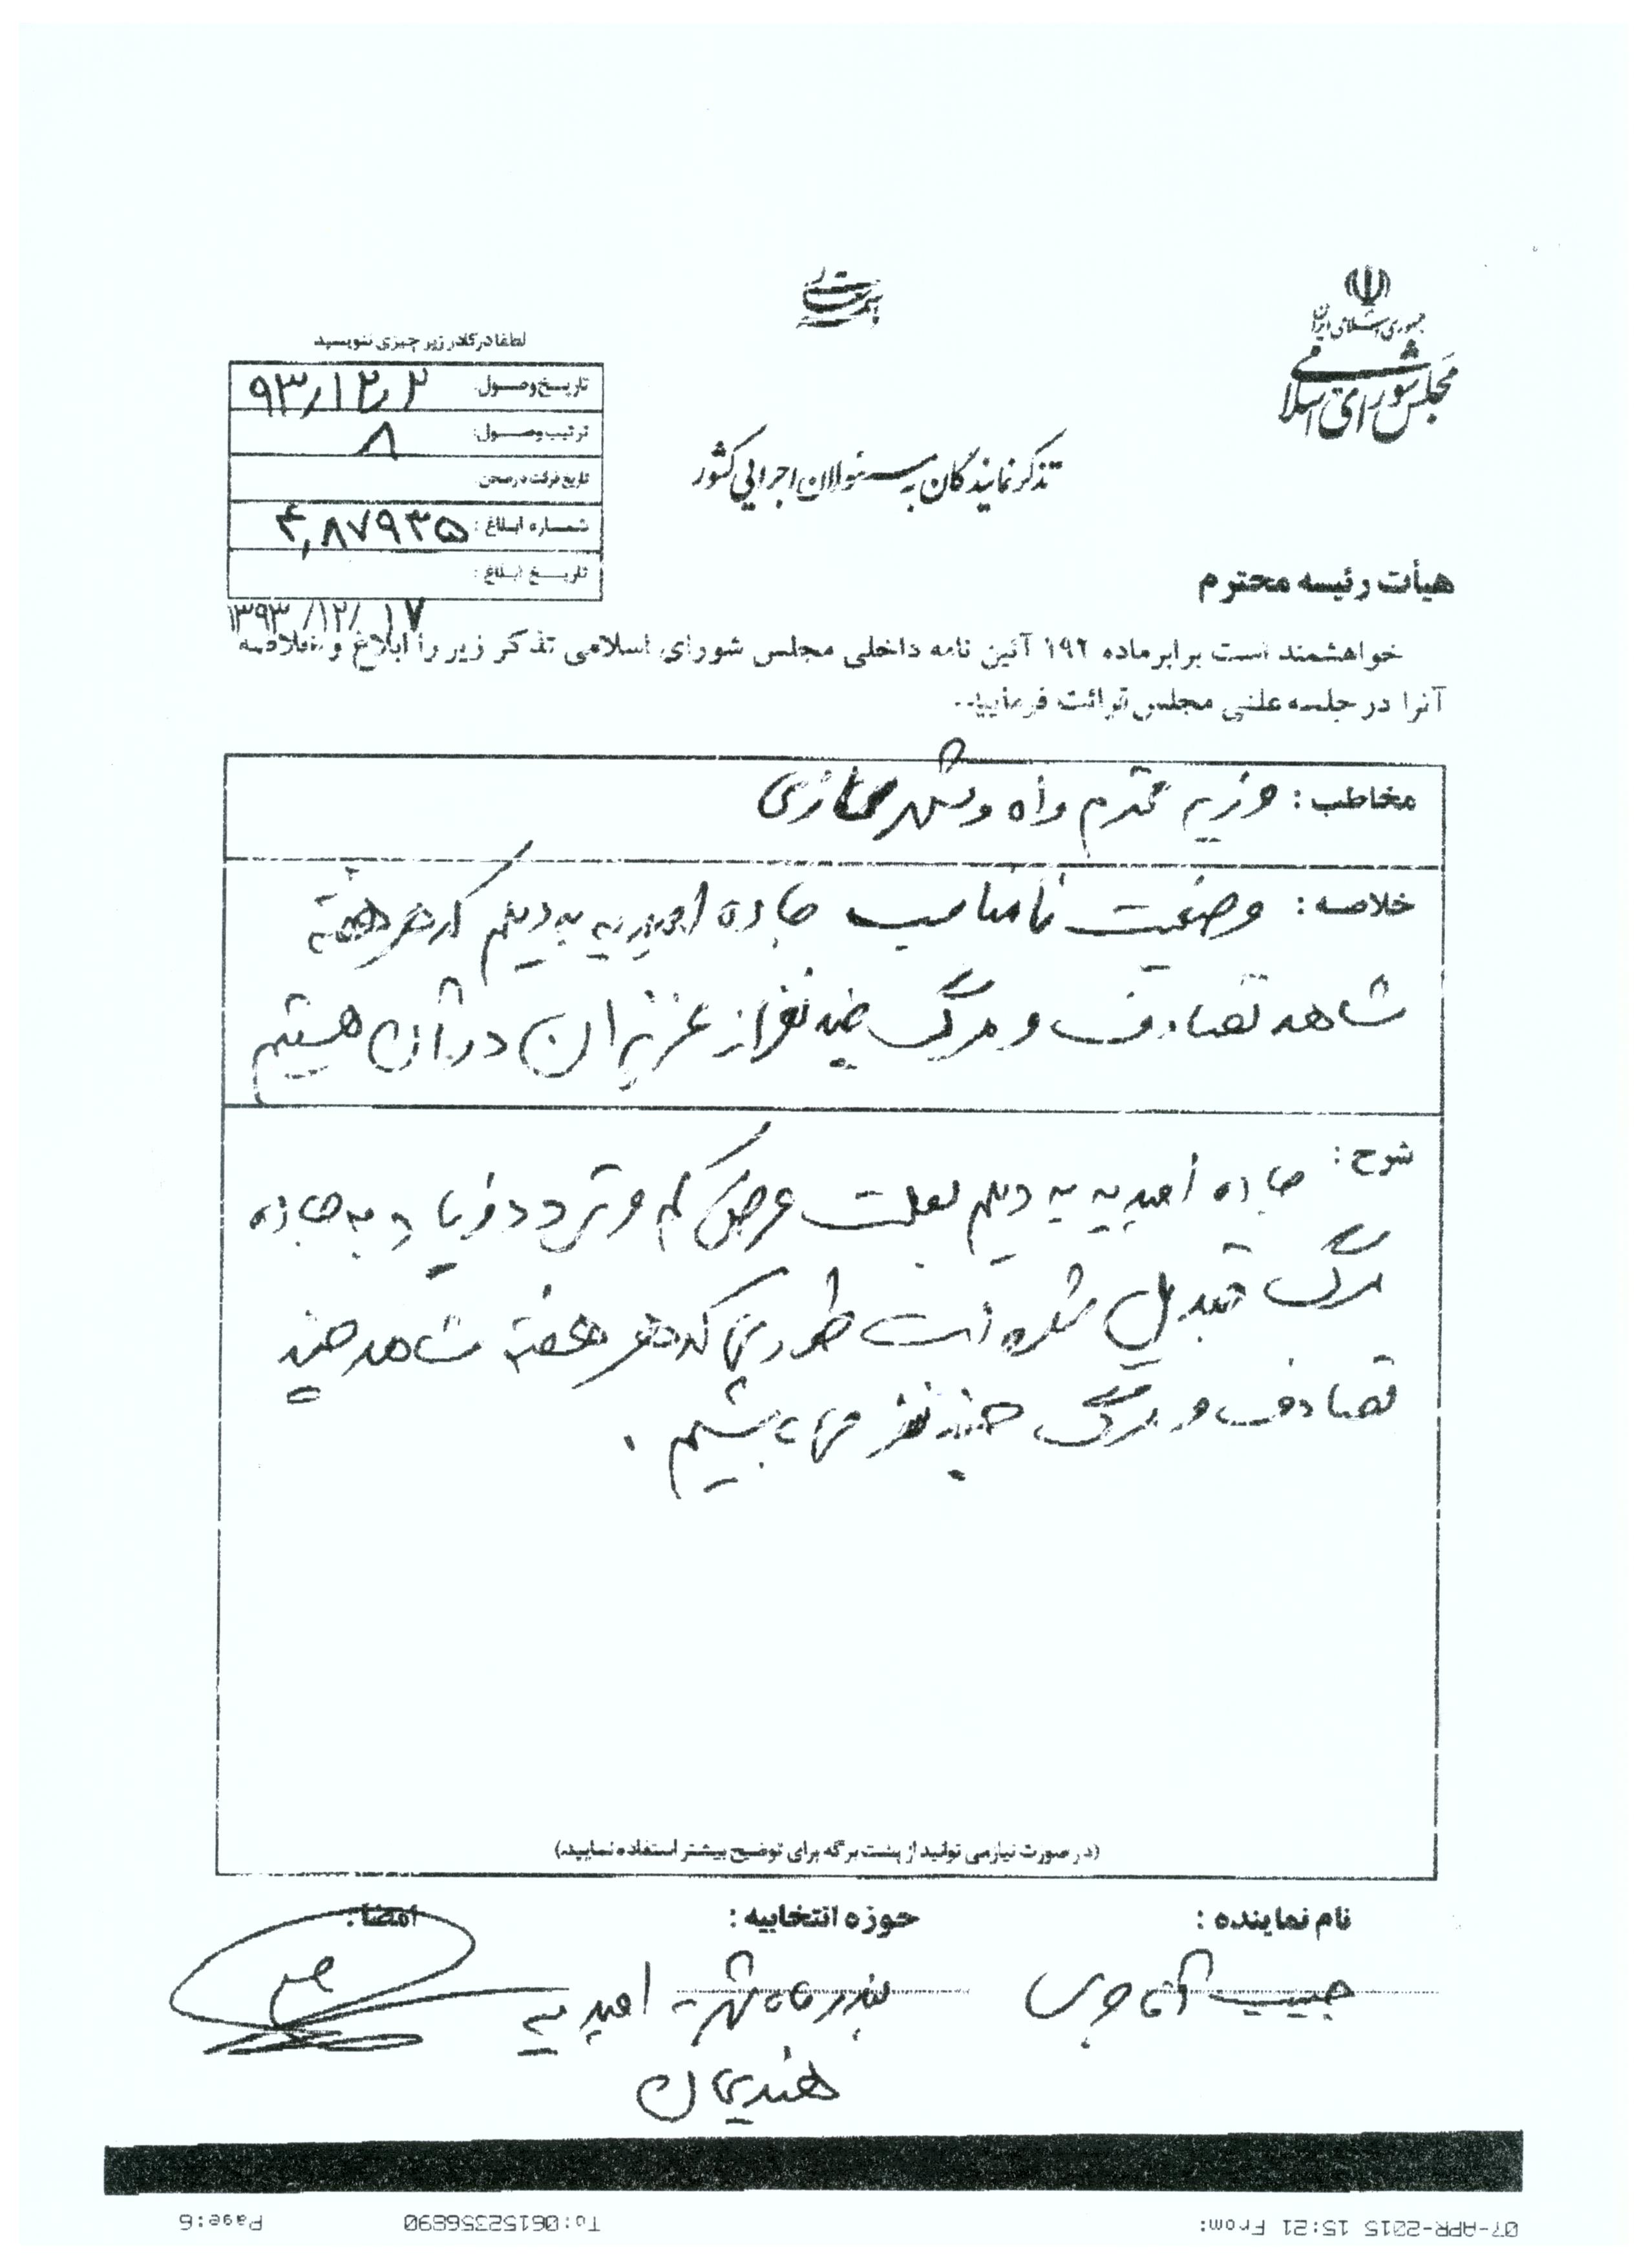 باسمه تعالی
جمهوری اسلامی ایران
مجلس شورای اسلامی
تذکر نمایندگان به مسئولان اجرایی کشور
لطفا در کادر زیر چیزی ننویسید
تاریخ وصول: ۹۳/۱۲/۲
ترتیب وصول: ۸
تاریخ قرائت در صحن:
شماره ابلاغ: ۴,۸۷۹۳۵
تاریخ ابلاغ:
۱۳۹۳/۱۲/۱۷
هیأت رئیسه محترم
خواهشمند است برابر ماده ۱۹۲ آئین نامه داخلی مجلس شورای اسلامی تذکر زیر را ابلاغ و خلاصه
آنرا در جلسه علنی مجلس قرائت فرمایید.
مخاطب: وزیر محترم راه و شهرسازی
خلاصه: وضعیت نامناسب جاده امیدیه به دیلم که هر هفته
شاهد تصادف و مرگ چند نفر از عزیزان در آن هستیم
شرح: جاده امیدیه به دیلم بعلت عرض کم و تردد زیاد به جاده
مرگ تبدیل شده است طوری که هر هفته شاهد چند
تصادف و مرگ چند نفر می باشیم.
(در صورت نیاز می توانید از پشت برگه برای توضیح بیشتر استفاده نمایید)
نام نماینده: حوزه انتخابیه: امضا:
حبیب آقاجری بندر ماهشهر - امیدیه
هندیجان
07-APR-2015 15:21 From: To:06152356890 Page:6